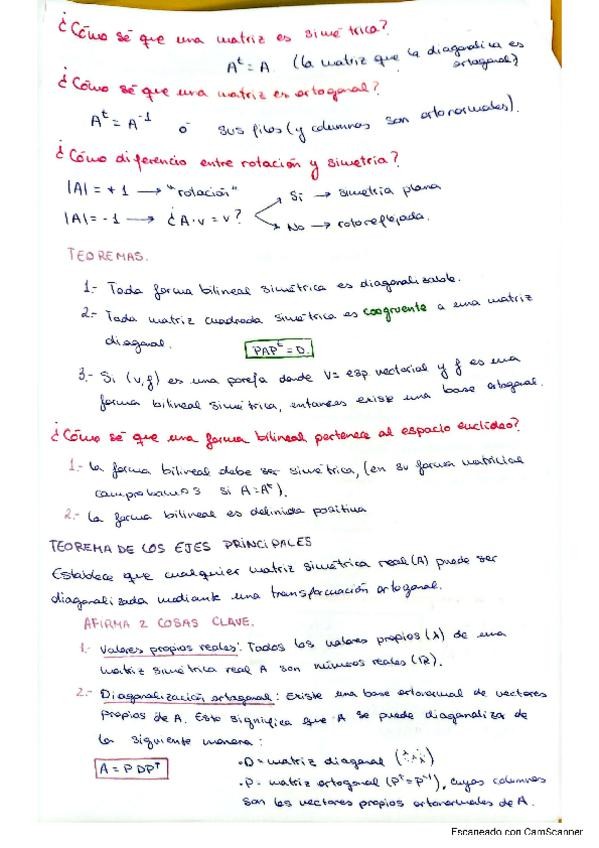 ¿Cómo sé que una matriz es simétrica?
Aᵗ = A. (la matriz que la diagonaliza es
ortogonal)
¿Cómo sé que una matriz es ortogonal?
Aᵗ = A⁻¹ ó sus filas (y columnas son ortonormales).
¿Cómo diferencio entre rotación y simetría?
|A| = +1 → "rotación"
Si → simetría plana
|A| = -1 → ¿A·v = v?
No → rotoreflejada.
TEOREMAS.
1.- Toda forma bilineal simétrica es diagonalizable.
2.- Toda matriz cuadrada simétrica es congruente a una matriz
diagonal. PAPᵗ = D.
3.- Si (V,f) es una pareja donde V = esp vectorial y f es una
forma bilineal simétrica, entonces existe una base ortogonal.
¿Cómo sé que una forma bilineal pertenece al espacio euclídeo?
1.- La forma bilineal debe ser simétrica, (en su forma matricial
comprobamos si A = Aᵗ).
2.- La forma bilineal es definida positiva
TEOREMA DE LOS EJES PRINCIPALES
Establece que cualquier matriz simétrica real (A) puede ser
diagonalizada mediante una transformación ortogonal.
AFIRMA 2 COSAS CLAVE.
1.- Valores propios reales: Todos los valores propios (λ) de una
matriz simétrica real A son números reales (ℝ).
2.- Diagonalización ortogonal: Existe una base ortonormal de vectores
propios de A. Esto significa que A se puede diagonalizar de
la siguiente manera:
·D = matriz diagonal
A = PDPᵀ
·P = matriz ortogonal (Pᵗ = P⁻¹), cuyas columnas
son los vectores propios ortonormales de A.
Escaneado con CamScanner